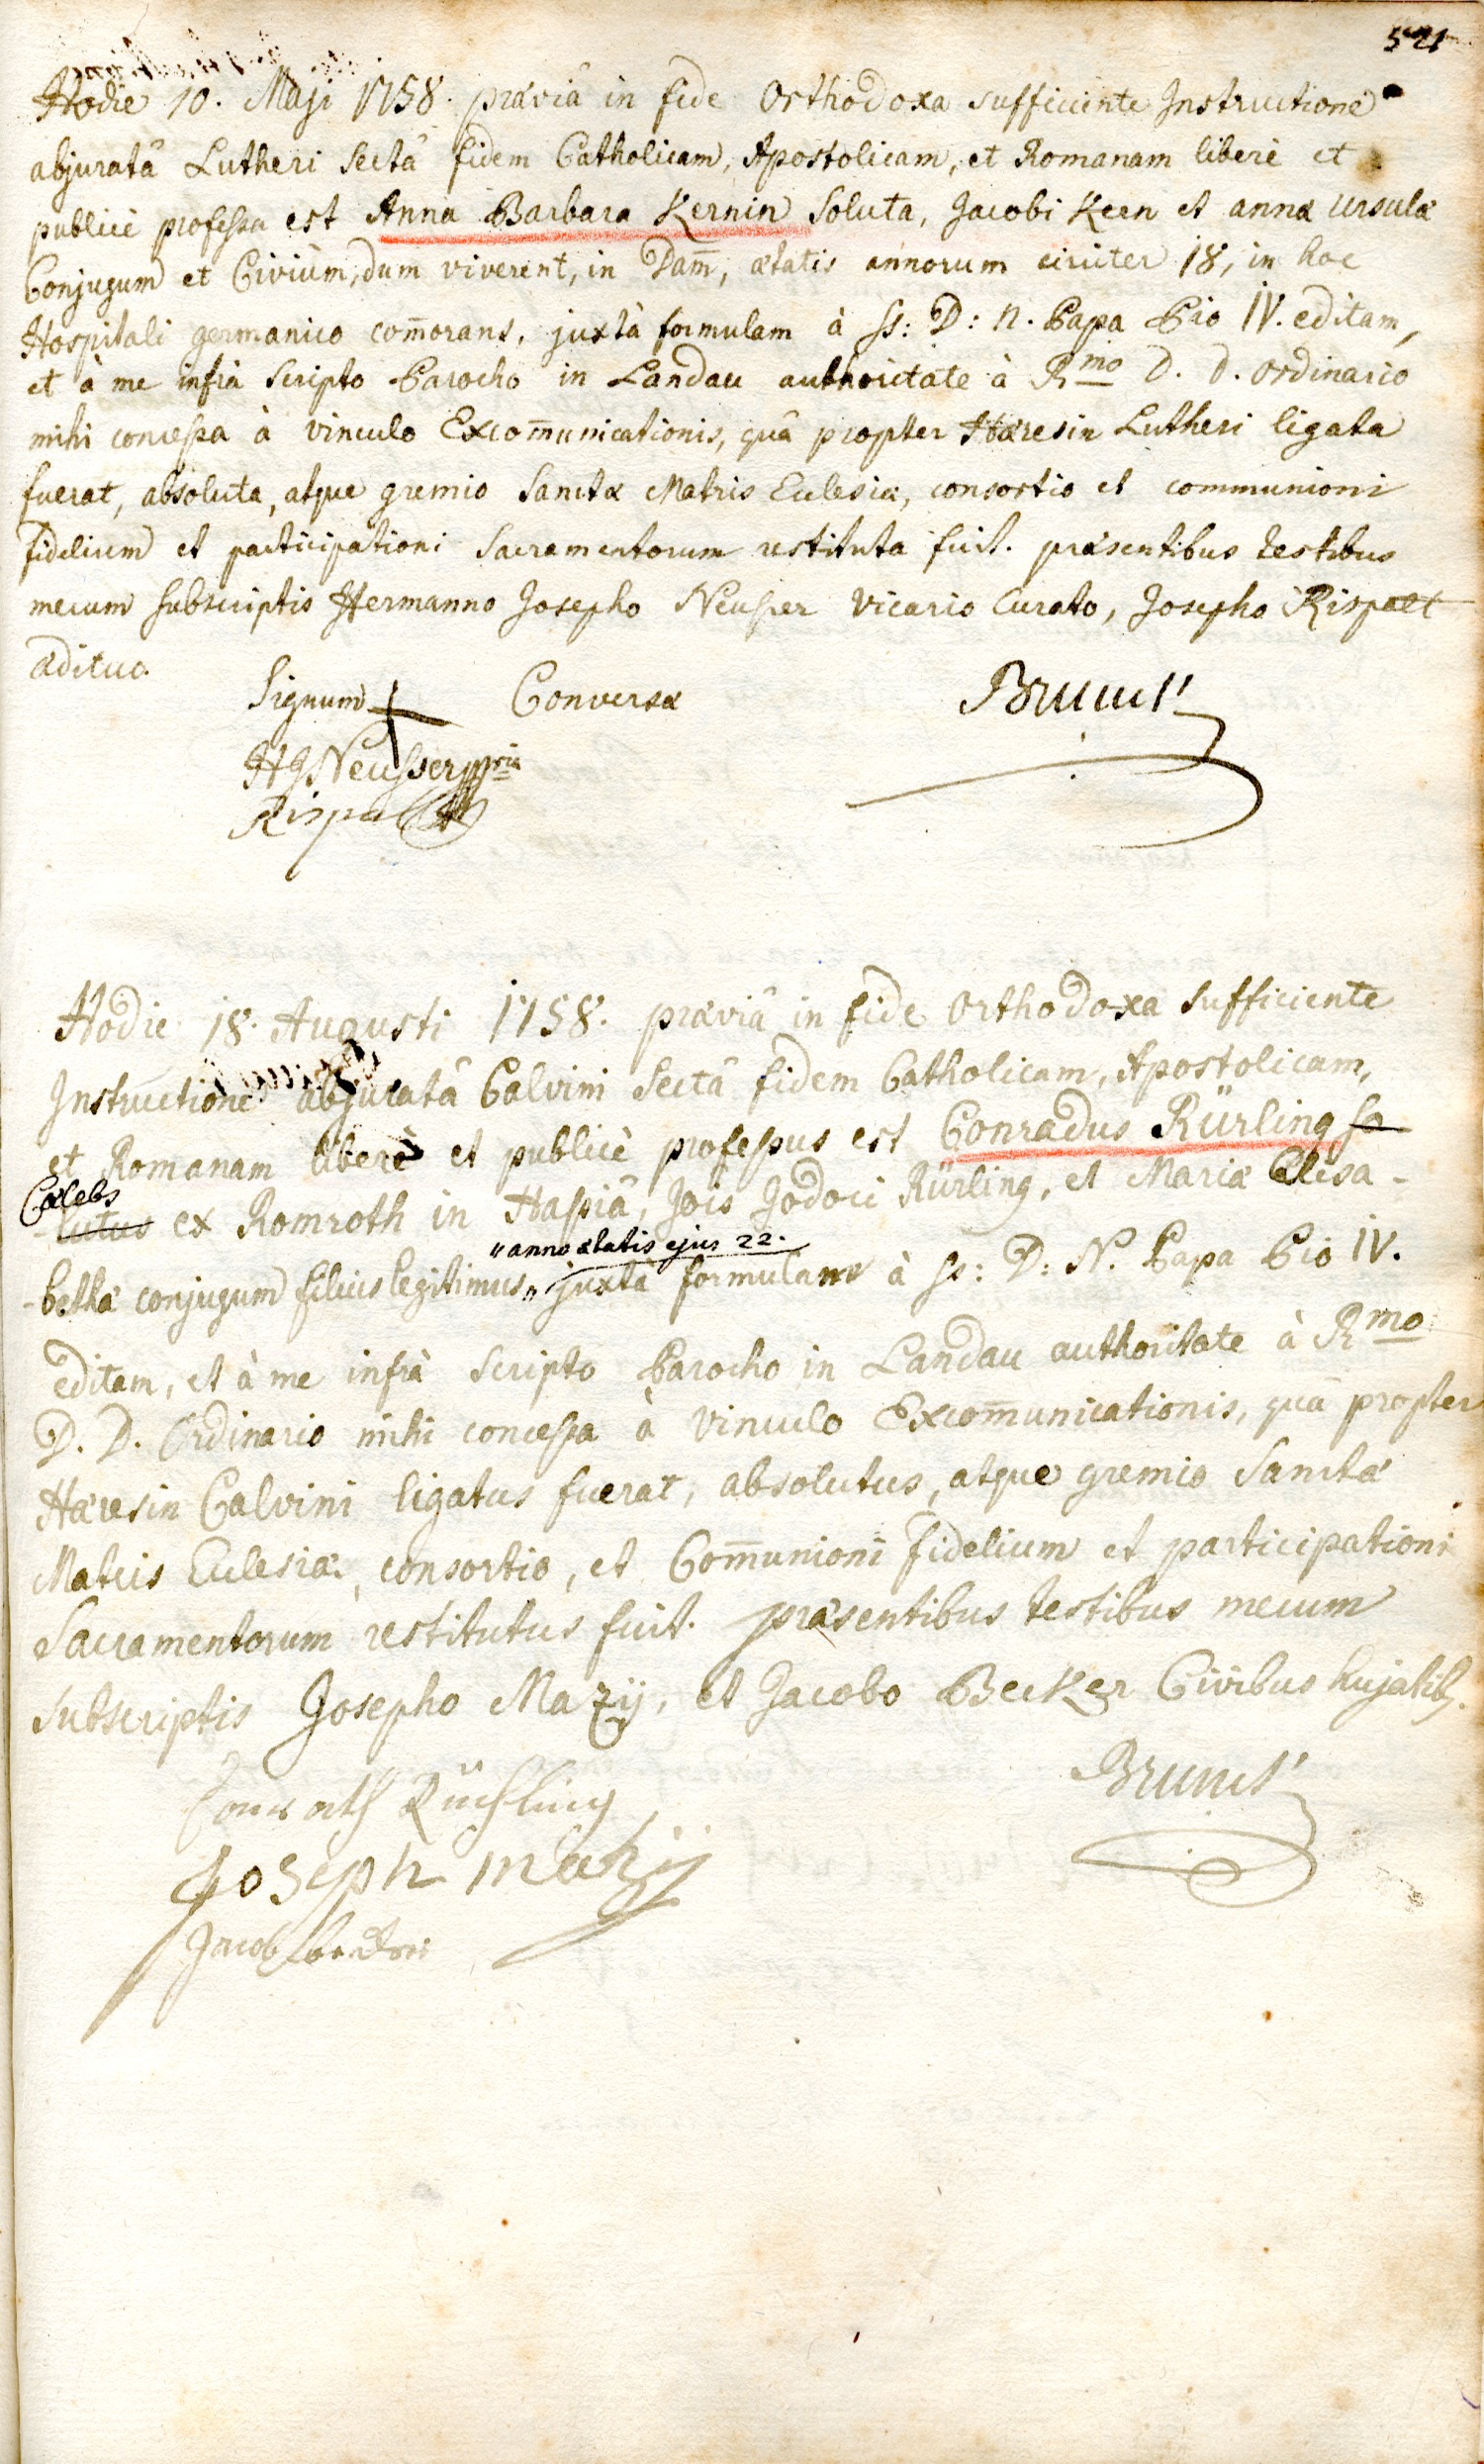 521
Hodie 10. Maji 1758. præviâ in fide Orthodoxa sufficiente Instructione
abjuratâ Lutheri Sectâ fidem Catholicam, Apostolicam, et Romanam liberè et
publicè professa est Anna Barbara Kernin Soluta, Jacobi Kern et annæ Ursulæ
Conjugum et Civium, dum viverent, in Dam̄, ætatis annorum circiter 18, in hoc
Hospitali germanico com̄orans, juxtà formulam à SS: D: N. Papa Pio IV. editam,
et à me infrà Scripto Parocho in Landau authoritate à Rmo D. D. Ordinario
mihi concessa à vinculo Excom̄unicationis, quâ propter Hæresin Lutheri ligata
fuerat, absoluta, atque gremio Sanctæ Matris Ecclesiæ, consortio et communioni
fidelium et participationi Sacramentorum restituta fuit. præsentibus testibus
mecum subscriptis Hermanno Josepho Neusser Vicario Curato, Josepho Rispalt
ædituo.
Signum + Conversæ
Brunet
HJ Neusser ppria
Rispalt
Hodie 18. Augusti 1758. præviâ in fide Orthodoxa sufficiente
Instructione abjuratâ Calvini Sectâ fidem Catholicam, Apostolicam,
et Romanam liberè et publicè professus est Conradus Rürling so
Cælebs
-lutus ex Romroth in Hassiâ, Jois Jodoci Rürling, et Mariæ Elisa-
"anno ætatis ejus 22.
-bethæ conjugum filius legitimus" juxta formulam à SS: D: N. Papa Pio IV.
editam, et à me infrà Scripto Parocho in Landau authoritate à Rmo
D. D. Ordinario mihi concessa à Vinculo Excom̄unicationis, quâ propter
Hæresin Calvini ligatus fuerat, absolutus, atque gremio Sanctæ
Matris Ecclesiæ, consortio, et Com̄unioni fidelium et participationi
Sacramentorum restitutus fuit. præsentibus testibus mecum
Subscriptis Josepho Mazij, et Jacobo Becker Civibus hujatib.
Brunet
Conrath Rühling
Joseph mahij
Jacob becker